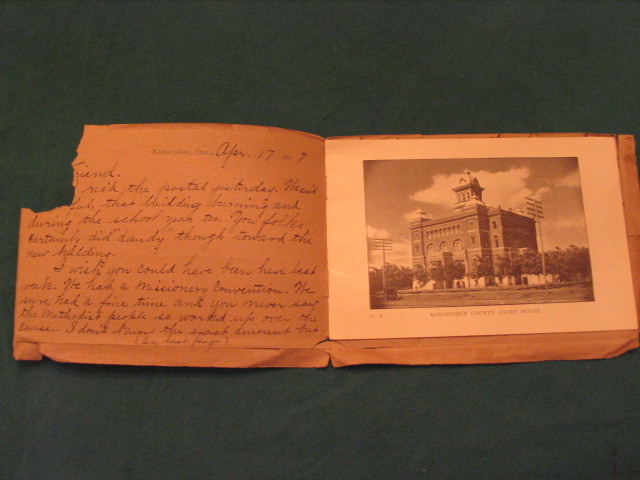 Kingfisher, Okla. Apr. 17 190 7
Friend.
rec'd the postal yesterday. Wasn't
ful, that building burning and
during the school year too. You folks
certainly did "dandy" though toward the
new building.
I wish you could have been here last
week. We had a Missionery Convention. We
sure had a fine time and you never saw
the Methodist people so worked up over the
cause. I don't know the exact amount but
(On last page)
KINGFISHER COUNTY COURT HOUSE